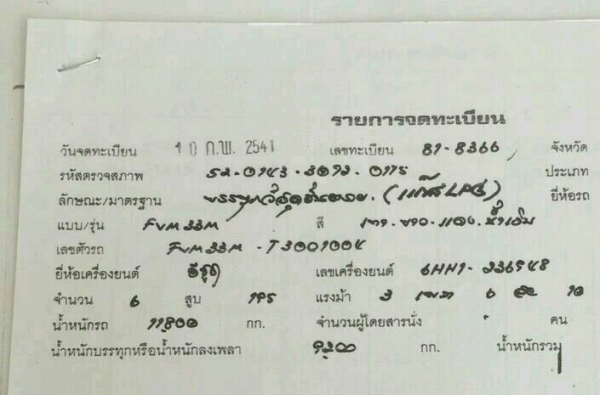 รายการจดทะเบียน
วันจดทะเบียน 10 ก.พ. 2541 เลขทะเบียน 81-8366 จังหวัด
รหัสตรวจสภาพ ประเภท
ลักษณะ/มาตรฐาน บรรทุกวัสดุอันตราย (แก๊ส LPG) ยี่ห้อรถ
แบบ/รุ่น FVM33M สี เทา-ขาว-แดง-น้ำเงิน
เลขตัวรถ FVM33M-T3001004
ยี่ห้อเครื่องยนต์ อีซูซุ เลขเครื่องยนต์ 6HH1-336948
จำนวน 6 สูบ 195 แรงม้า 3 เพลา 6 ล้อ 10
น้ำหนักรถ 11800 กก. จำนวนผู้โดยสารนั่ง - คน
น้ำหนักบรรทุกหรือน้ำหนักลงเพลา กก. น้ำหนักรวม